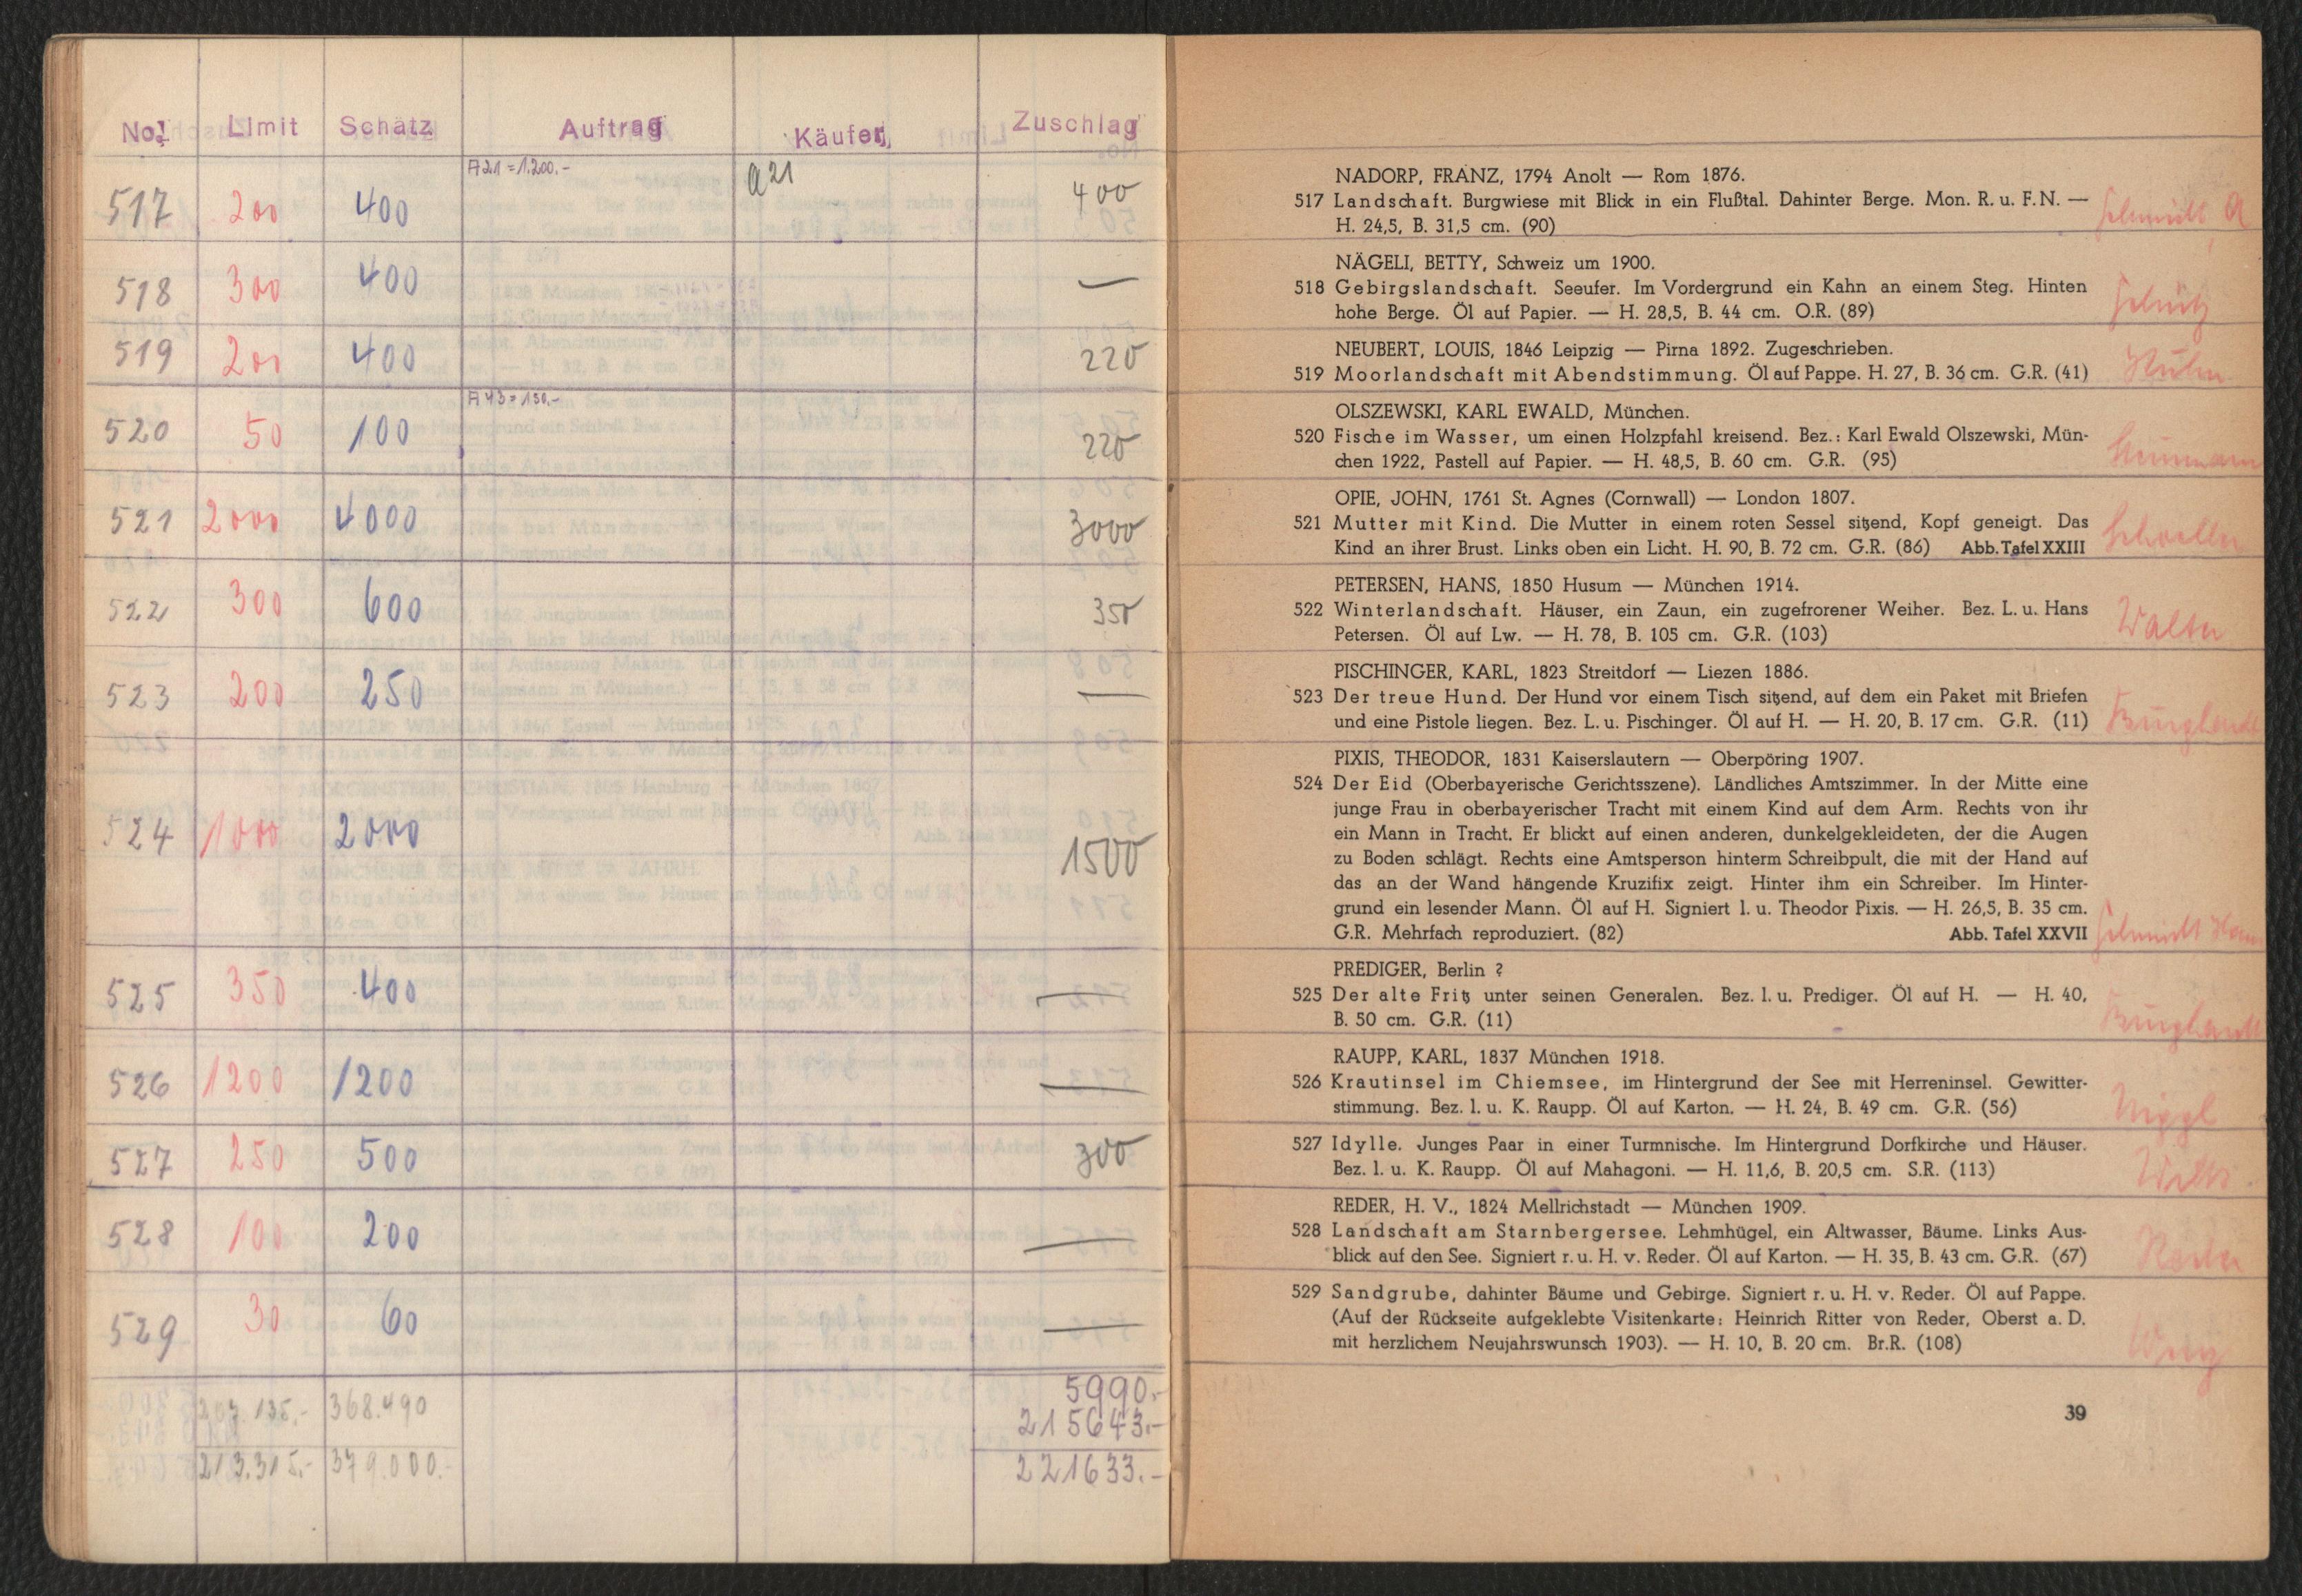 No. Limit Schätz Auftrag Käufer Zuschlag
A21 = 1.200.- a21
517 200 400 400
518 300 400 —
519 200 400 220
A43 = 130.-
520 50 100 220
521 2000 4000 3000
522 300 600 350
523 200 250 —
524 1000 2000 1500
525 350 400 —
526 1200 1200 —
527 250 500 300
528 100 200 —
529 30 60 —
5990.-
207.135.- 368.490 215643.-
213.315.- 379.000.- 221633.-
NADORP, FRANZ, 1794 Anolt — Rom 1876.
517 Landschaft. Burgwiese mit Blick in ein Flußtal. Dahinter Berge. Mon. R. u. F. N. —
H. 24,5, B. 31,5 cm. (90) Schmidt, A
NÄGELI, BETTY, Schweiz um 1900.
518 Gebirgslandschaft. Seeufer. Im Vordergrund ein Kahn an einem Steg. Hinten
hohe Berge. Öl auf Papier. — H. 28,5, B. 44 cm. O.R. (89) Schütz
NEUBERT, LOUIS, 1846 Leipzig — Pirna 1892. Zugeschrieben.
519 Moorlandschaft mit Abendstimmung. Öl auf Pappe. H. 27, B. 36 cm. G.R. (41)
OLSZEWSKI, KARL EWALD, München.
520 Fische im Wasser, um einen Holzpfahl kreisend. Bez.: Karl Ewald Olszewski, Mün-
chen 1922, Pastell auf Papier. — H. 48,5, B. 60 cm. G.R. (95)
OPIE, JOHN, 1761 St. Agnes (Cornwall) — London 1807.
521 Mutter mit Kind. Die Mutter in einem roten Sessel sitzend, Kopf geneigt. Das
Kind an ihrer Brust. Links oben ein Licht. H. 90, B. 72 cm. G.R. (86) Abb. Tafel XXIII Schoeller
PETERSEN, HANS, 1850 Husum — München 1914.
522 Winterlandschaft. Häuser, ein Zaun, ein zugefrorener Weiher. Bez. L. u. Hans
Petersen. Öl auf Lw. — H. 78, B. 105 cm. G.R. (103) Walter
PISCHINGER, KARL, 1823 Streitdorf — Liezen 1886.
523 Der treue Hund. Der Hund vor einem Tisch sitzend, auf dem ein Paket mit Briefen
und eine Pistole liegen. Bez. L. u. Pischinger. Öl auf H. — H. 20, B. 17 cm. G.R. (11)
PIXIS, THEODOR, 1831 Kaiserslautern — Oberpöring 1907.
524 Der Eid (Oberbayerische Gerichtsszene). Ländliches Amtszimmer. In der Mitte eine
junge Frau in oberbayerischer Tracht mit einem Kind auf dem Arm. Rechts von ihr
ein Mann in Tracht. Er blickt auf einen anderen, dunkelgekleideten, der die Augen
zu Boden schlägt. Rechts eine Amtsperson hinterm Schreibpult, die mit der Hand auf
das an der Wand hängende Kruzifix zeigt. Hinter ihm ein Schreiber. Im Hinter-
grund ein lesender Mann. Öl auf H. Signiert l. u. Theodor Pixis. — H. 26,5, B. 35 cm.
G.R. Mehrfach reproduziert. (82) Abb. Tafel XXVII Schmidt
PREDIGER, Berlin ?
525 Der alte Fritz unter seinen Generalen. Bez. l. u. Prediger. Öl auf H. — H. 40,
B. 50 cm. G.R. (11)
RAUPP, KARL, 1837 München 1918.
526 Krautinsel im Chiemsee, im Hintergrund der See mit Herreninsel. Gewitter-
stimmung. Bez. l. u. K. Raupp. Öl auf Karton. — H. 24, B. 49 cm. G.R. (56) Niggl
527 Idylle. Junges Paar in einer Turmnische. Im Hintergrund Dorfkirche und Häuser.
Bez. l. u. K. Raupp. Öl auf Mahagoni. — H. 11,6, B. 20,5 cm. S.R. (113)
REDER, H. V., 1824 Mellrichstadt — München 1909.
528 Landschaft am Starnbergersee. Lehmhügel, ein Altwasser, Bäume. Links Aus-
blick auf den See. Signiert r. u. H. v. Reder. Öl auf Karton. — H. 35, B. 43 cm. G.R. (67)
529 Sandgrube, dahinter Bäume und Gebirge. Signiert r. u. H. v. Reder. Öl auf Pappe.
(Auf der Rückseite aufgeklebte Visitenkarte: Heinrich Ritter von Reder, Oberst a. D.
mit herzlichem Neujahrswunsch 1903). — H. 10, B. 20 cm. Br.R. (108)
39